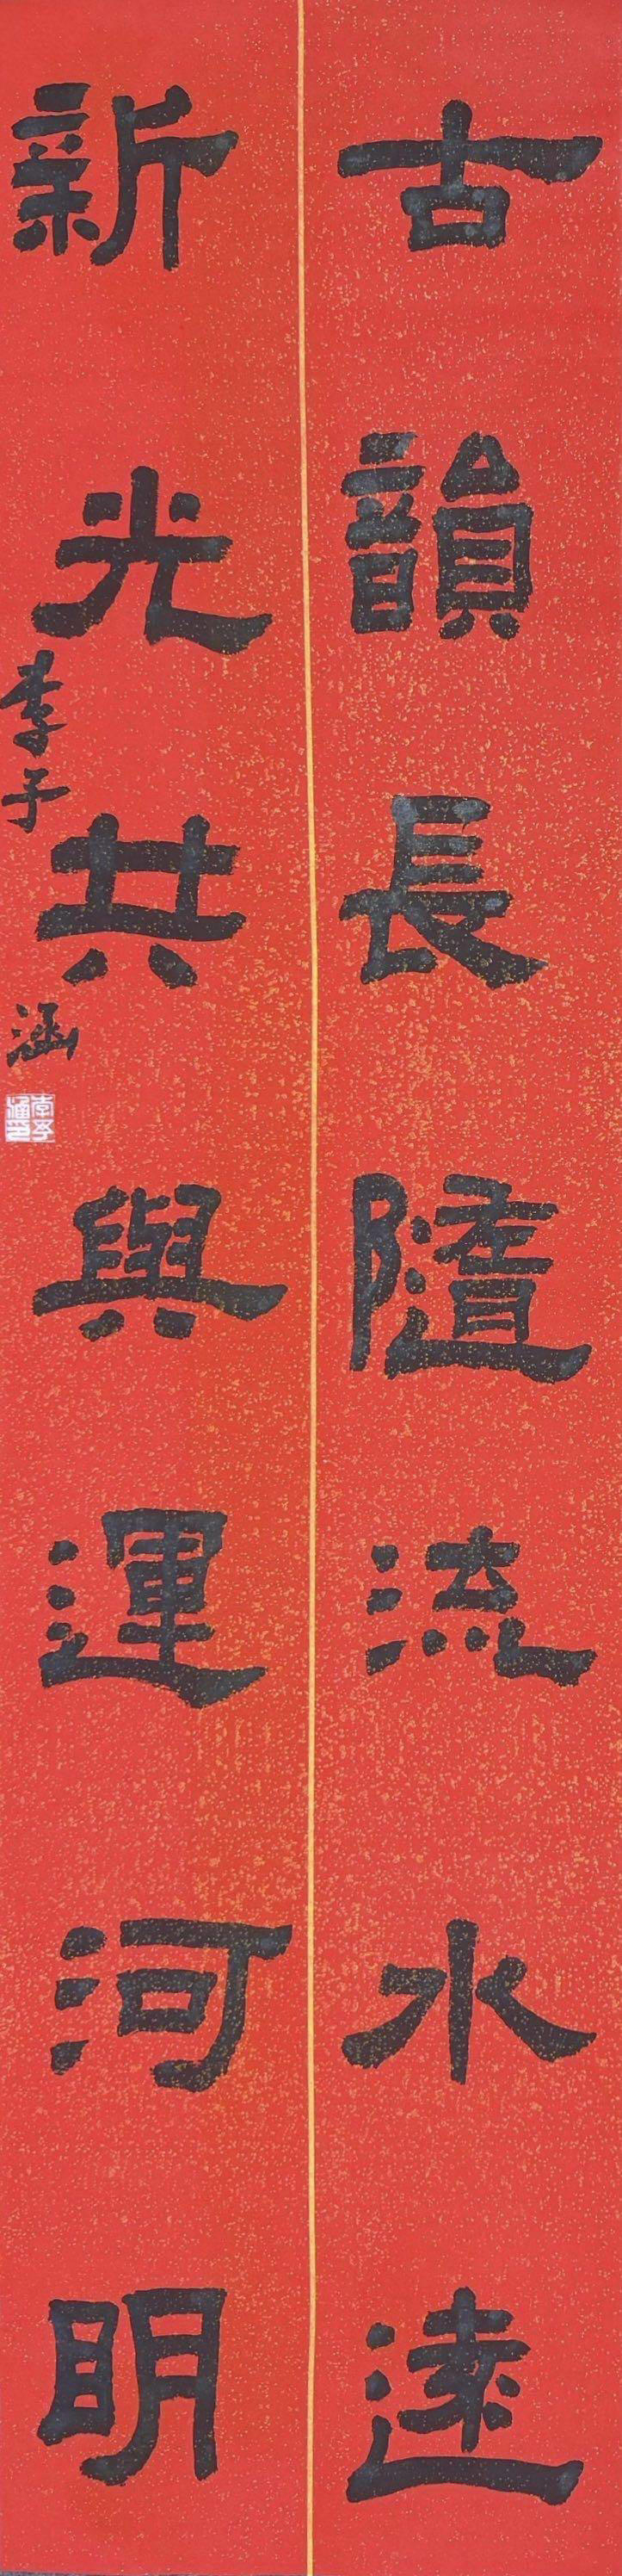 古韻長隨流水遠
新光共與運河明
李子涵
李子涵印